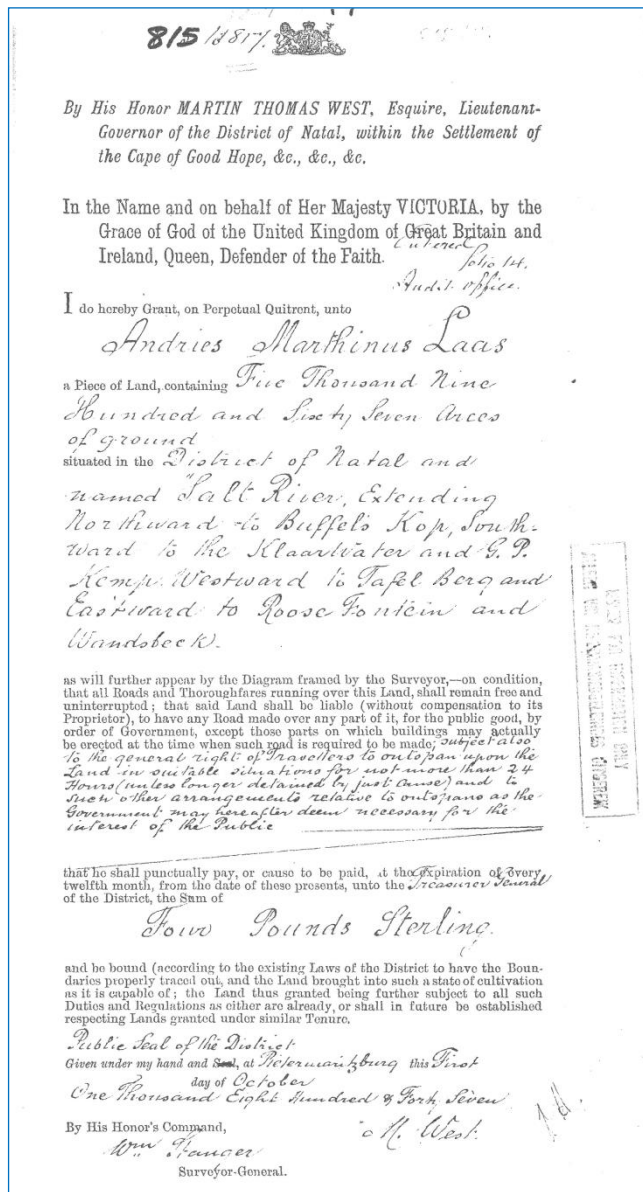 815/1847.
By His Honor MARTIN THOMAS WEST, Esquire, Lieutenant-
Governor of the District of Natal, within the Settlement of
the Cape of Good Hope, &c., &c., &c.
In the Name and on behalf of Her Majesty VICTORIA, by the
Grace of God of the United Kingdom of Great Britain and
Ireland, Queen, Defender of the Faith.
Entered
folio 14.
Audit office.
I do hereby Grant, on Perpetual Quitrent, unto
Andries Marthinus Laas
a Piece of Land, containing Five Thousand Nine
Hundred and Sixty Seven Acres
of ground
situated in the District of Natal and
named "Salt River, Extending
Northward to Buffels Kop, South-
ward to the Klaarwater and G. P.
Kemp. Westward to Tafel Berg and
Eastward to Roose Fontein and
Wandsbeck.
as will further appear by the Diagram framed by the Surveyor,—on condition,
that all Roads and Thoroughfares running over this Land, shall remain free and
uninterrupted; that said Land shall be liable (without compensation to its
Proprietor), to have any Road made over any part of it, for the public good, by
order of Government, except those parts on which buildings may actually
be erected at the time when such road is required to be made; subject also
to the general right of Travellers to outspan upon the
Land in suitable situations for not more than 24
Hours (unless longer detained by just Cause) and to
such other arrangements relative to outspans as the
Government may hereafter deem necessary for the
interest of the Public
that he shall punctually pay, or cause to be paid, at the expiration of every
twelfth month, from the date of these presents, unto the Treasurer General
of the District, the Sum of
Four Pounds Sterling.
and be bound (according to the existing Laws of the District to have the Boun-
daries properly traced out, and the Land brought into such a state of cultivation
as it is capable of; the Land thus granted being further subject to all such
Duties and Regulations as either are already, or shall in future be established
respecting Lands granted under similar Tenure.
Public Seal of the District
Given under my hand and Seal, at Pietermaritzburg this First
day of October
One Thousand Eight Hundred & Forty Seven
By His Honor's Command,
M. West.
Wm Stanger
Surveyor-General.